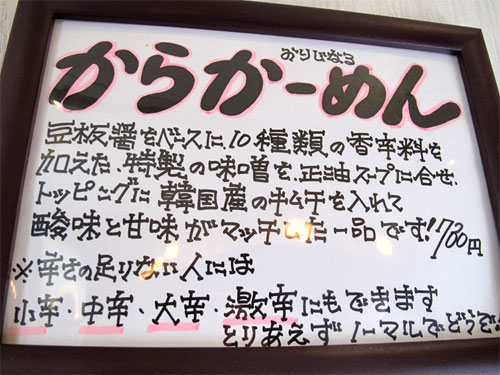 おりじなる
からかーめん
豆板醤をベースに10種類の香辛料を
加えた、特製の味噌を、正油スープに合せ、
トッピングに韓国産のキムチを入れて
酸味と甘味がマッチした一品です!700円
※辛さの足りない人には
小辛・中辛・大辛・激辛にもできます
とりあえずノーマルでどうぞ